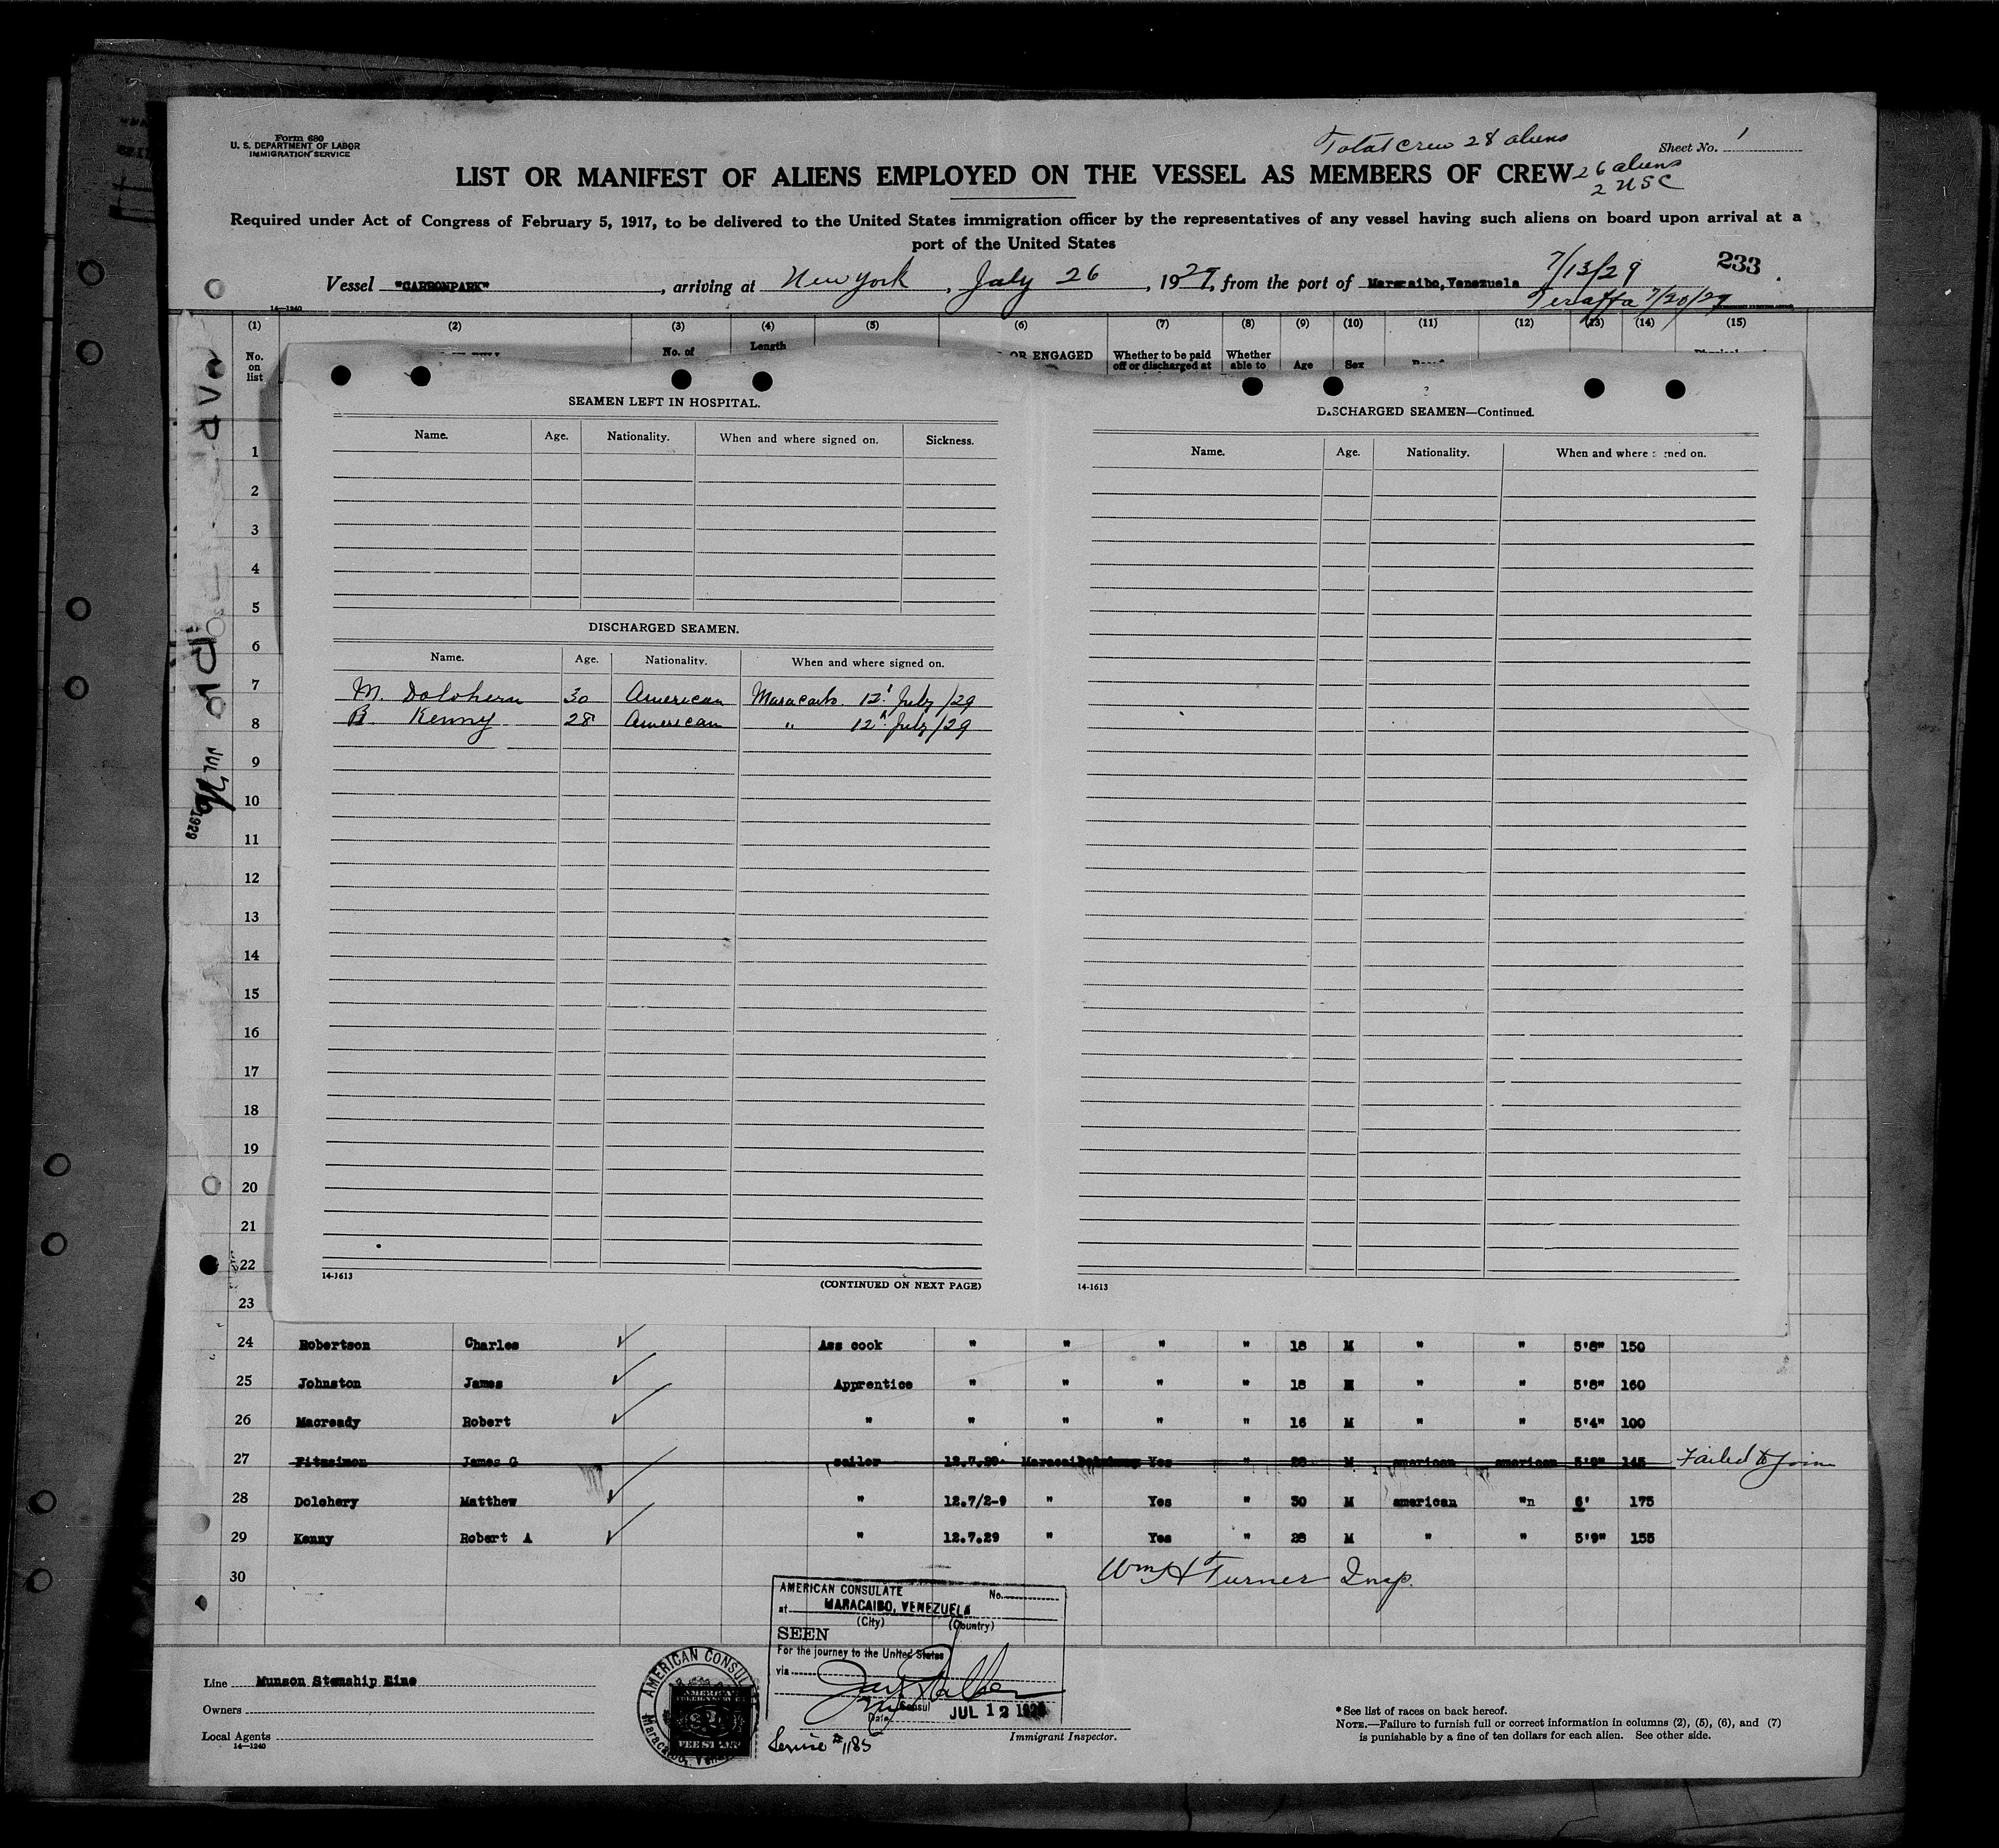 Form 680
U. S. DEPARTMENT OF LABOR
IMMIGRATION SERVICE
Total crew 28 aliens
Sheet No. 1
26 aliens
2 USC
LIST OR MANIFEST OF ALIENS EMPLOYED ON THE VESSEL AS MEMBERS OF CREW
Required under Act of Congress of February 5, 1917, to be delivered to the United States immigration officer by the representatives of any vessel having such aliens on board upon arrival at a
port of the United States
7/13/29
233
Vessel "CARRONPARK", arriving at New York, July 26, 1929, from the port of Maracaibo, Venezuela
Teraffa 7/20/29
14-1240
(1) (2) (3) (4) (5) (6) (7) (8) (9) (10) (11) (12) (13) (14) (15)
No. on list
No. of
Length
OR ENGAGED
Whether to be paid off or discharged at
Whether able to
Age
Sex
SEAMEN LEFT IN HOSPITAL.
Name. Age. Nationality. When and where signed on. Sickness.
DISCHARGED SEAMEN.
Name. Age. Nationality. When and where signed on.
M. Dolohern 30 American Maracaibo 12' July /29
B. Kenny 28 American " 12" July /29
14-1613
(CONTINUED ON NEXT PAGE)
DISCHARGED SEAMEN—Continued.
Name. Age. Nationality. When and where signed on.
14-1613
JUL 26 1929
1
2
3
4
5
6
7
8
9
10
11
12
13
14
15
16
17
18
19
20
21
22
23
24 Robertson Charles ✓ Ass cook " " " " 18 M " " 5'8" 150
25 Johnston James ✓ Apprentice " " " " 18 M " " 5'8" 160
26 Macready Robert ✓ " " " " " 16 M " " 5'4" 100
27 Fitzsimon James G ✓ sailor 12.7.29. Maracaibo Yes " 28 M american american 5'9" 145 Failed to join
28 Dolohery Matthew ✓ " 12.7/2-9 " Yes " 30 M american "n 6' 175
29 Kenny Robert A ✓ " 12.7.29 " Yes " 28 M " " 5'9" 155
30
Wm H Turner Insp.
AMERICAN CONSULATE No.
at MARACAIBO, VENEZUELA
(City) (Country)
SEEN
For the journey to the United States
via
Consul
Date JUL 12 1929
Service # 1185
AMERICAN CONSUL
Maracaibo, Ven
AMERICAN
FOREIGN SERVICE
$2
FEE STAMP
Line Munson Stemship Line
Owners
Local Agents
14-1240
Immigrant Inspector.
* See list of races on back hereof.
NOTE.—Failure to furnish full or correct information in columns (2), (5), (6), and (7)
is punishable by a fine of ten dollars for each alien. See other side.